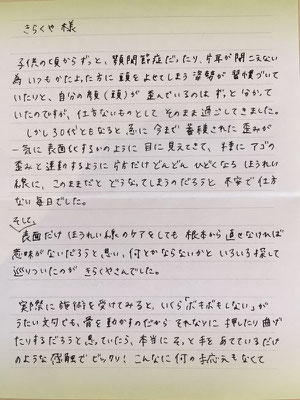 きらくや 様
子供の頃からずっと、顎関節症だったり、片耳が聞こえない
為 いつもかたよった方に頭をよせてしまう姿勢が習慣づいて
いたりと、自分の顔(頭)が歪んでいるのはずっと分かって
いたのですが、仕方ないものとして そのまま過ごしてきました。
しかし30代ともなると、急に今まで蓄積された歪みが
一気に表面化するかのように目に見えてきて、特にアゴの
歪みと連動するように片方だけどんどんひどくなる ほうれい
線に、このままだとどうなってしまうのだろうと 不安で仕方
ない毎日でした。
そして、
表面だけ ほうれい線のケアをしても 根本から直せなければ
意味がないだろうと思い、何とかならないかといろいろ探して
巡りついたのが きらくやさんでした。
実際に施術を受けてみると、いくら「ボキボキもしない」が
うたい文句でも、骨を動かすのだから それなりに押したり曲げ
たりするだろうと思っていたら、本当に そっと手をあてているだけ
のような感触でビックリ! こんなに何の手応えもなくて